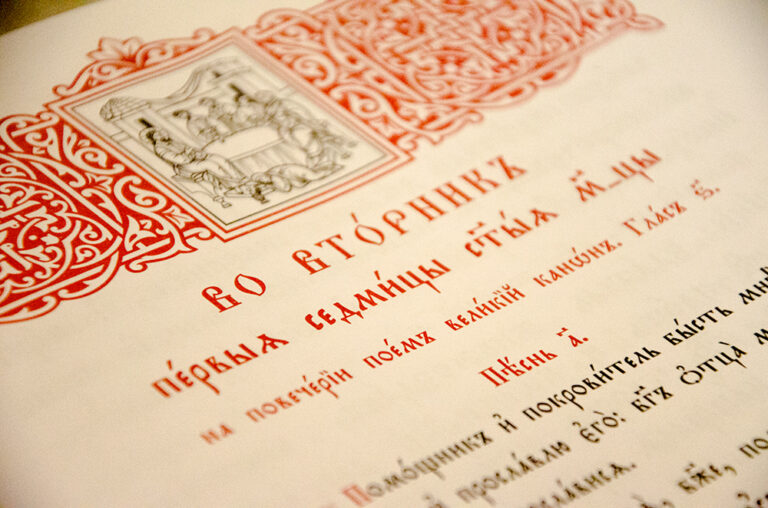 Во вто́рникъ
пе́рвыѧ седми́цы ст҃ы́ѧ м҃_цы
на повече́рїи пое́мъ вели́кїй канѡ́нъ. Гла́съ ѕ҃.
Пѣ́снь а҃.
Помо́щникъ и҆ покрови́тель бы́сть мнѣ̀
просла́влю є҆го̀: бг҃ъ ѻ҆тца̀
бж҃е,